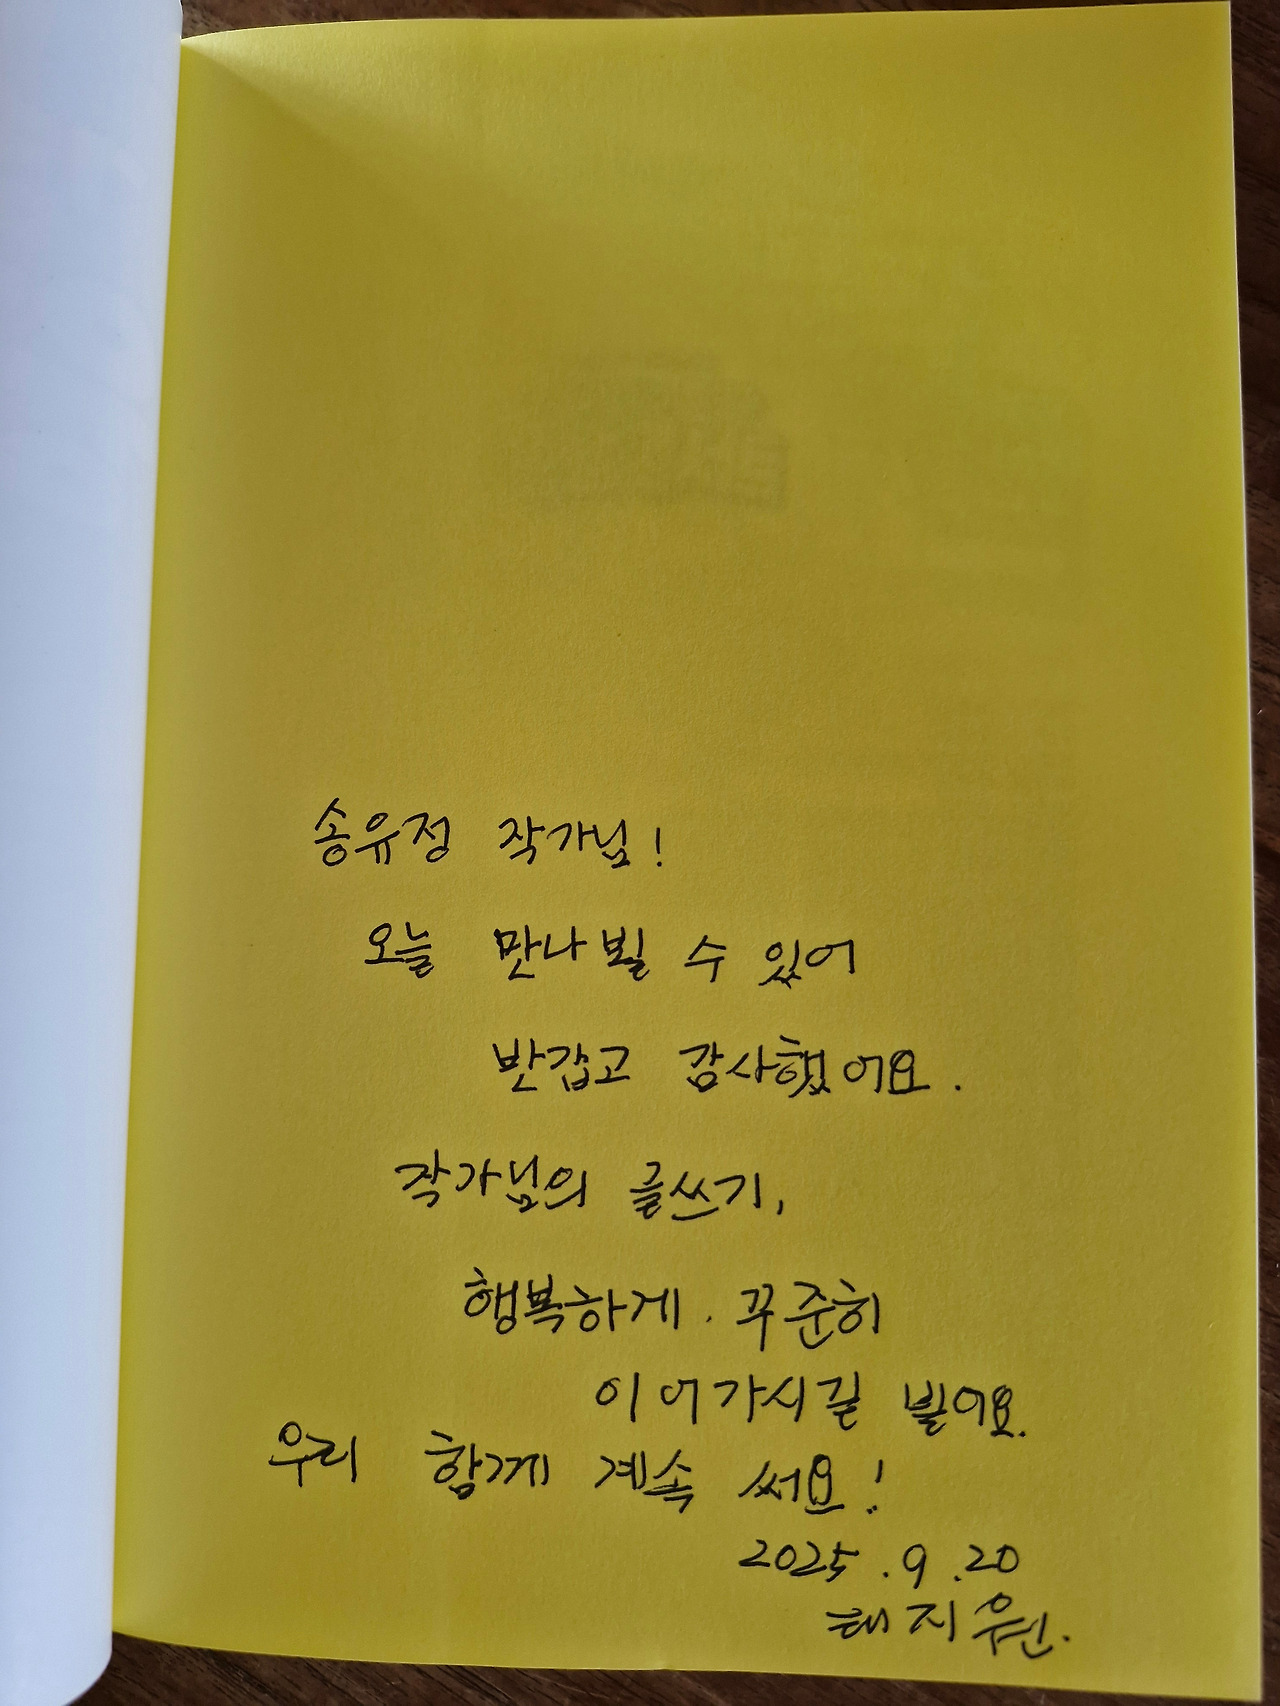 송유정 작가님!
오늘 만나뵐 수 있어
반갑고 감사했어요.
작가님의 글쓰기,
행복하게. 꾸준히
이어가시길 빌어요.
우리 함께 계속 써요!
2025.9.20
태지원.